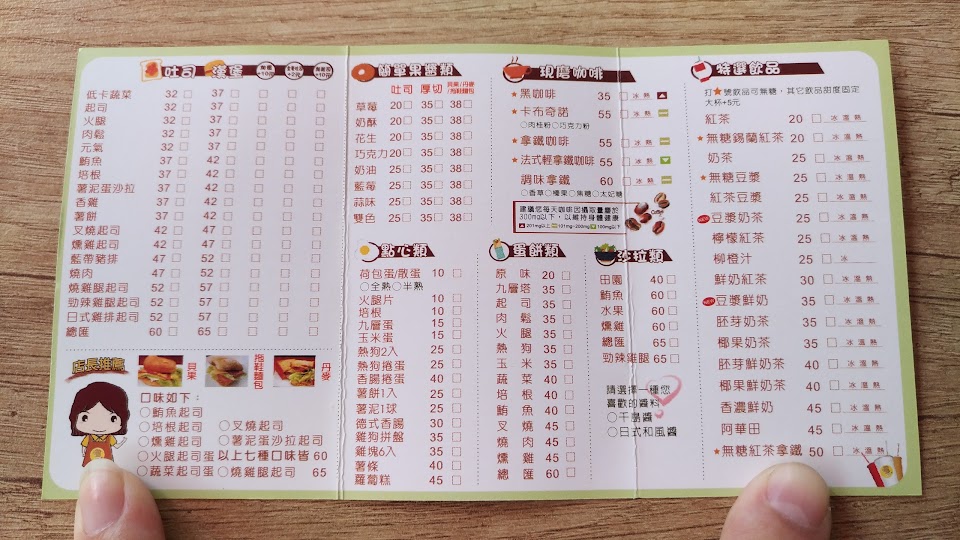 吐司 漢堡
低卡蔬菜 32 □ 37 □ □ □ □
起司 32 □ 37 □ □ □ □
火腿 32 □ 37 □ □ □ □
肉鬆 32 □ 37 □ □ □ □
元氣 32 □ 37 □ □ □ □
鮪魚 37 □ 42 □ □ □ □
培根 37 □ 42 □ □ □ □
薯泥蛋沙拉 37 □ 42 □ □ □ □
香雞 37 □ 42 □ □ □ □
薯餅 37 □ 42 □ □ □ □
叉燒起司 42 □ 47 □ □ □ □
燻雞起司 42 □ 47 □ □ □ □
藍帶豬排 47 □ 52 □ □ □ □
燒肉 47 □ 52 □ □ □ □
燒雞腿起司 52 □ 57 □ □ □ □
勁辣雞腿起司 52 □ 57 □ □ □ □
日式雞排起司 52 □ 57 □ □ □ □
總匯 60 □ 65 □ □ □ □
店長推薦
貝果
拖鞋麵包
丹麥
口味如下：
○鮪魚起司
○培根起司 ○叉燒起司
○燻雞起司 ○薯泥蛋沙拉起司
○火腿起司蛋 以上七種口味皆 60
○蔬菜起司蛋 ○燒雞腿起司 65
簡單果醬類
吐司 厚切 貝果/丹麥/拖鞋麵包
草莓 20□ 35□ 38□
奶酥 20□ 35□ 38□
花生 20□ 35□ 38□
巧克力 20□ 35□ 38□
奶油 25□ 35□ 38□
藍莓 25□ 35□ 38□
蒜味 25□ 35□ 38□
雙色 25□ 35□ 38□
點心類
荷包蛋/散蛋 10 □
○全熟○半熟
火腿片 10 □
培根 10 □
九層蛋 15 □
玉米蛋 15 □
熱狗2入 25 □
熱狗捲蛋 25 □
香腸捲蛋 40 □
薯餅1入 25 □
薯泥1球 25 □
德式香腸 30 □
雞狗拼盤 35 □
雞塊6入 35 □
薯條 40 □
蘿蔔糕 45 □
現磨咖啡
★黑咖啡 35 □ 冰 熱
★卡布奇諾 55 □ 冰 熱
○肉桂粉○巧克力粉
★拿鐵咖啡 55 □ 冰 熱
★法式輕拿鐵咖啡 55 □ 冰 熱
調味拿鐵 60 □ 冰 熱
○香草○榛果○焦糖○太妃糖
建議您每天咖啡因攝取量應於
300mg以下，以維持身體健康
201mg以上 101mg~200mg 100mg以下
蛋餅類
原味 20 □
九層塔 35 □
起司 35 □
肉鬆 35 □
火腿 35 □
熱狗 35 □
玉米 35 □
蔬菜 40 □
培根 40 □
鮪魚 40 □
叉燒 45 □
燒肉 45 □
燻雞 45 □
總匯 60 □
沙拉類
田園 40 □
鮪魚 60 □
水果 60 □
燻雞 60 □
總匯 65 □
勁辣雞腿 65 □
請選擇一種您
喜歡的醬料
○千島醬
○日式和風醬
特選飲品
打★號飲品可無糖，其它飲品甜度固定
大杯+5元
紅茶 20 □ 冰 溫 熱
★無糖錫蘭紅茶 20 □ 冰 溫 熱
奶茶 25 □ 冰 溫 熱
★無糖豆漿 25 □ 冰 溫 熱
紅茶豆漿 25 □ 冰 溫 熱
豆漿奶茶 25 □ 冰 溫 熱
檸檬紅茶 25 □ 冰 溫 熱
柳橙汁 25 □ 冰
鮮奶紅茶 35 □ 冰 溫 熱
豆漿鮮奶 35 □ 冰 溫 熱
胚芽奶茶 35 □ 冰 溫 熱
椰果奶茶 35 □ 冰 溫 熱
胚芽鮮奶茶 40 □ 冰 溫 熱
椰果鮮奶茶 40 □ 冰 溫 熱
香濃鮮奶 45 □ 冰 溫 熱
阿華田 45 □ 冰 溫 熱
★無糖紅茶拿鐵 50 □ 冰 溫 熱